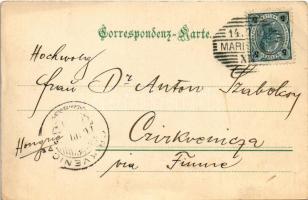 Correspondenz-Karte.
14.
MARIS
Hochwolg
Frau Dr Anton Szabolcsy
Czirkvenicza
via Fiume
Hongrie